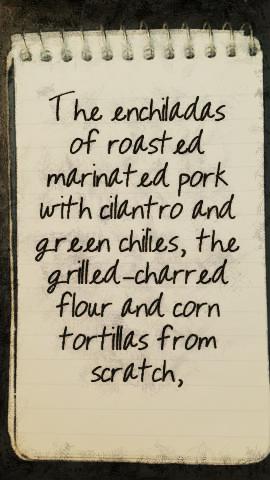 The enchiladas
of roasted
marinated pork
with cilantro and
green chilies, the
grilled-charred
flour and corn
tortillas from
scratch,